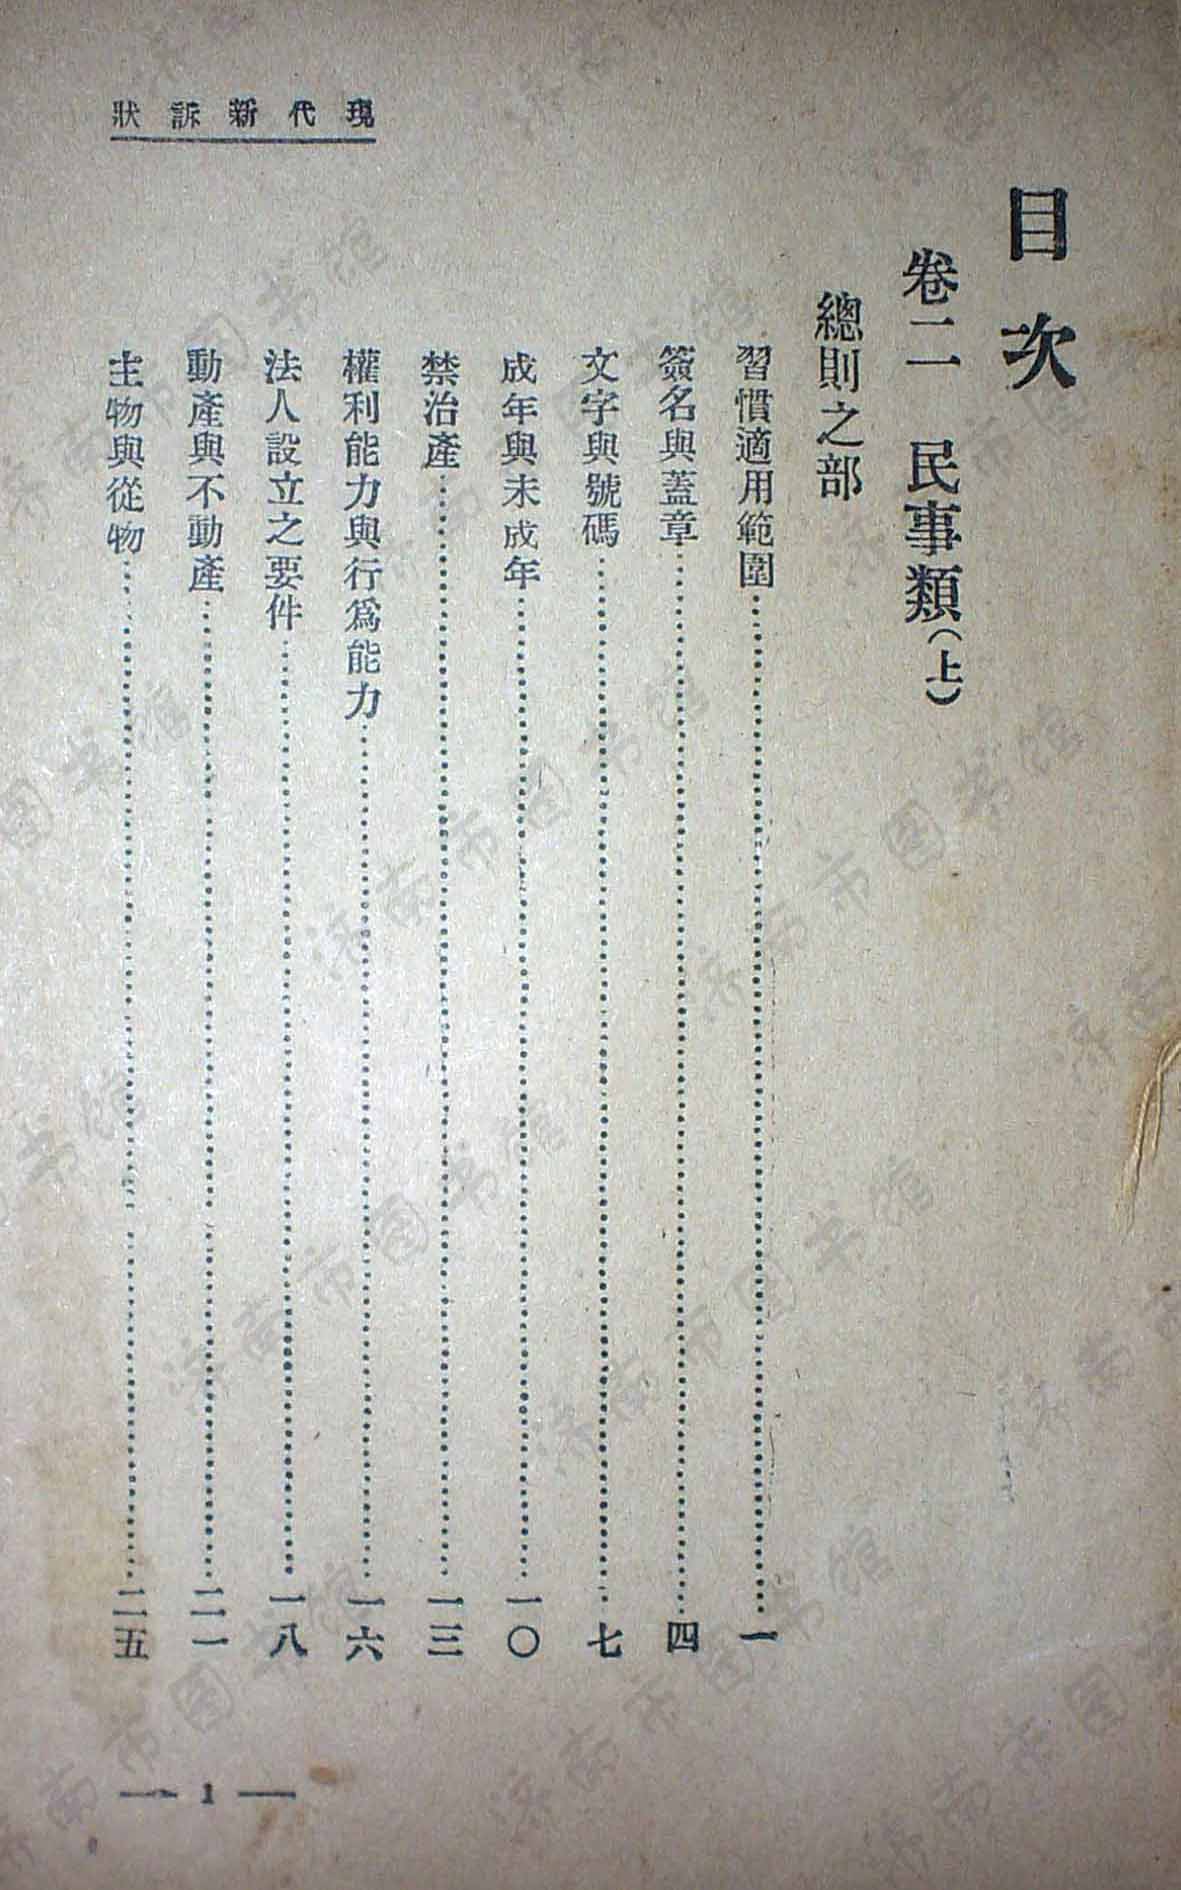 現代新訴狀
目次
卷二　民事類（上）
總則之部
習慣適用範圍……一
簽名與蓋章……四
文字與號碼……七
成年與未成年……一〇
禁治產……一三
權利能力與行爲能力……一六
法人設立之要件……一八
動產與不動產……二一
主物與從物……二五
— 1 —
济南市图书馆